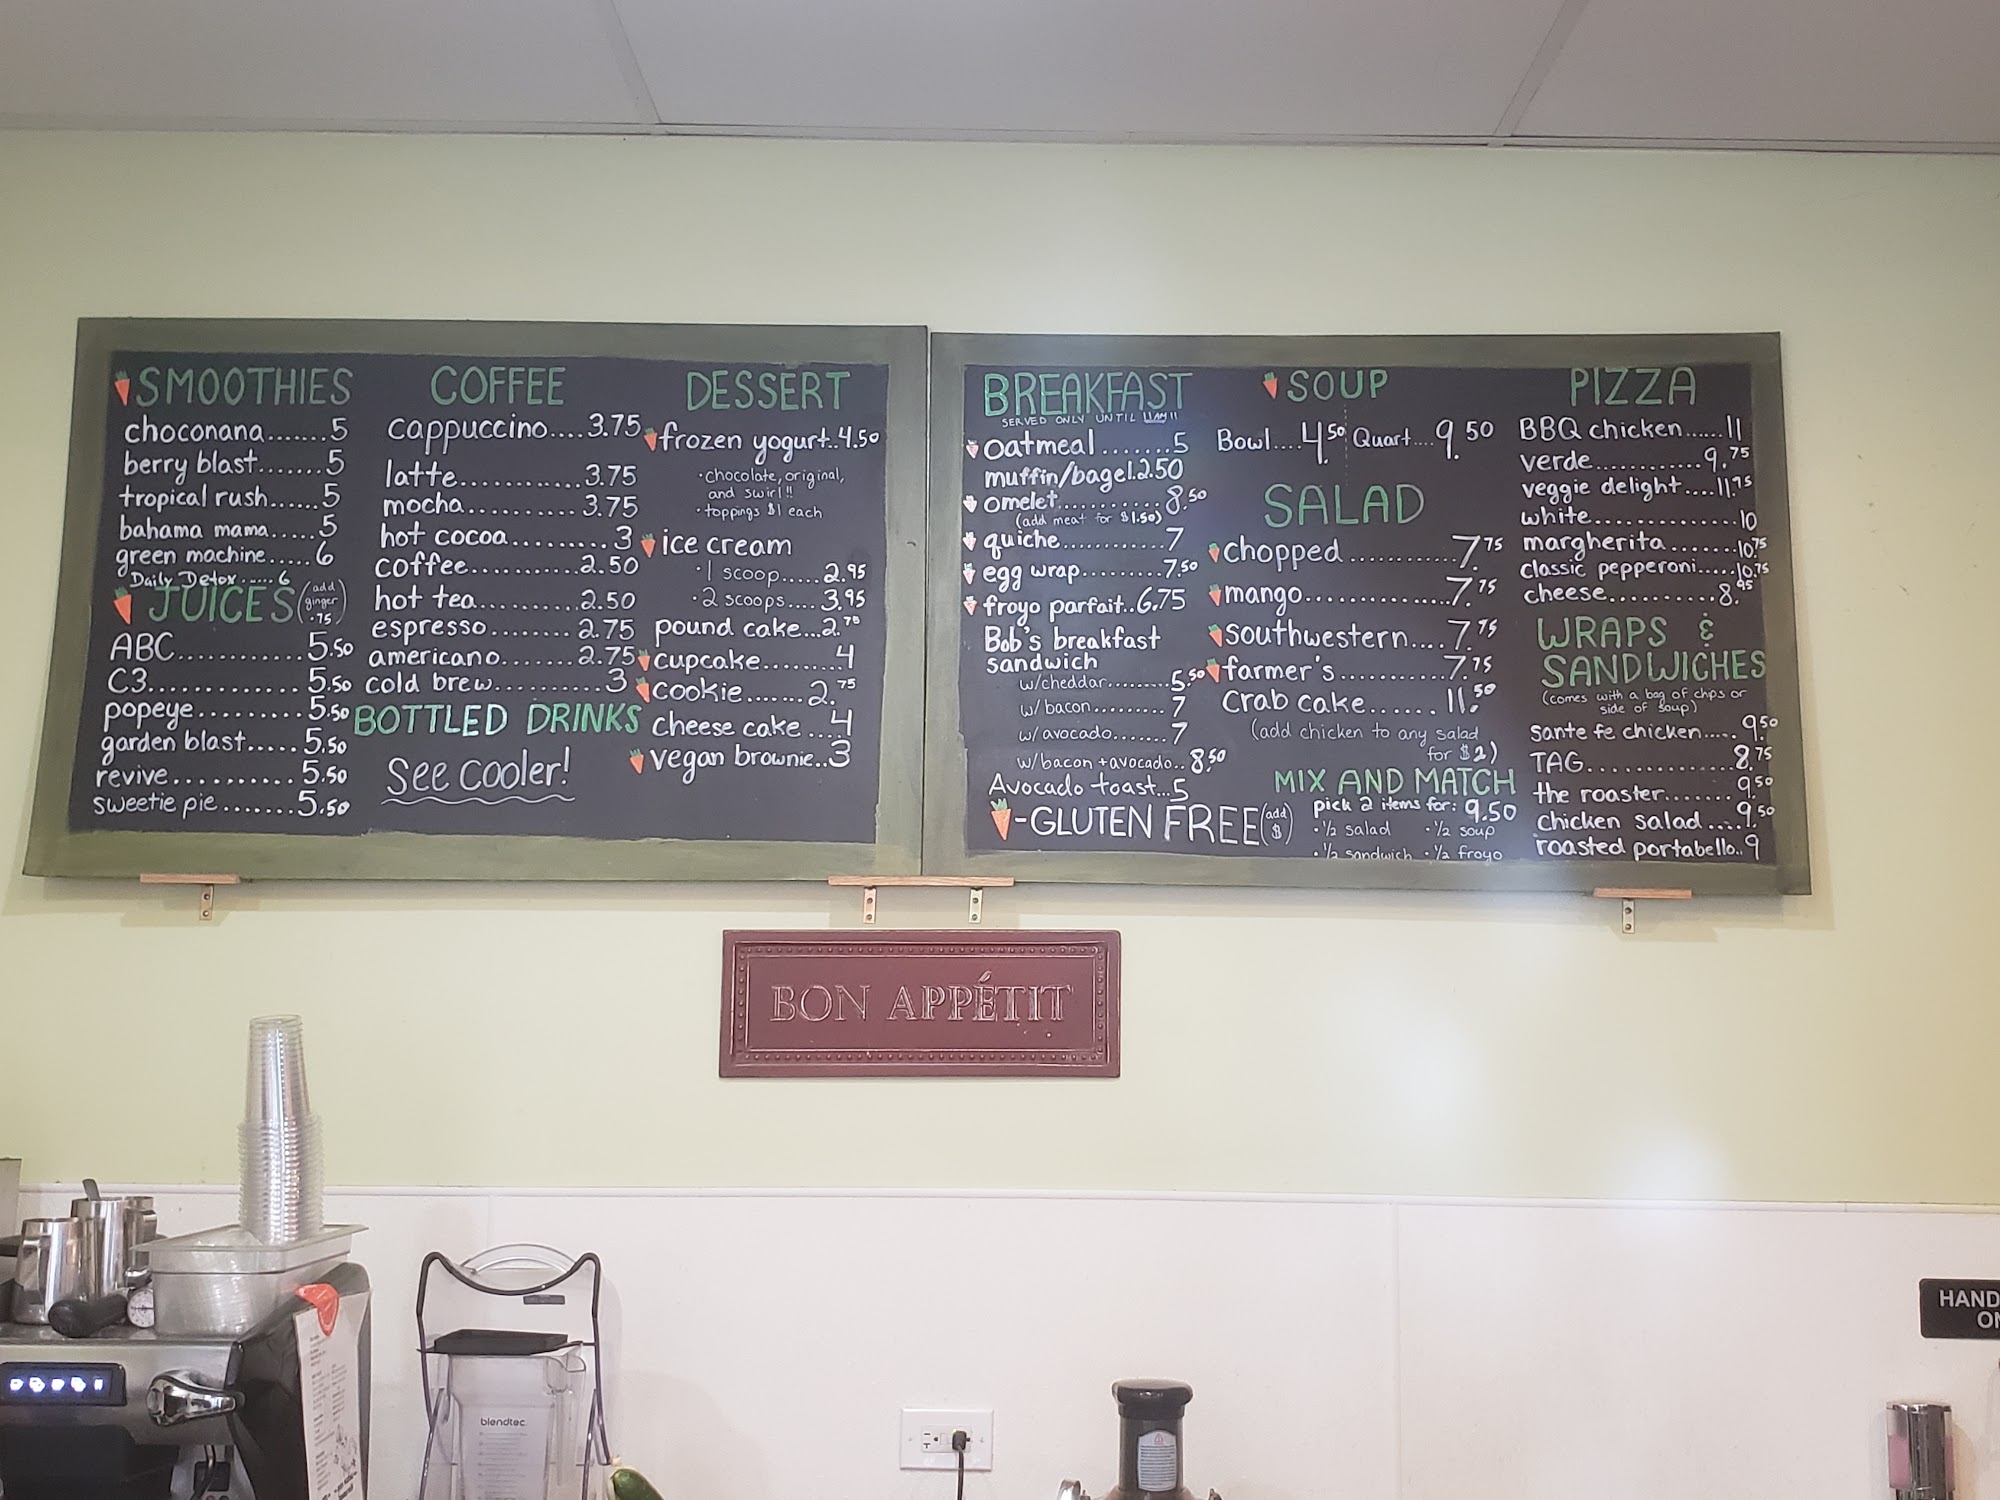 SMOOTHIES
choconana.......5
berry blast.......5
tropical rush......5
bahama mama.....5
green machine.....6
Daily Detox.....6
JUICES (add ginger .75)
ABC............5.50
C3..............5.50
popeye..........5.50
garden blast.....5.50
revive..........5.50
sweetie pie.......5.50
COFFEE
cappuccino....3.75
latte............3.75
mocha..........3.75
hot cocoa.........3
coffee...........2.50
hot tea..........2.50
espresso........2.75
americano.......2.75
cold brew..........3
BOTTLED DRINKS
See cooler!
DESSERT
frozen yogurt..4.50
·chocolate, original,
and swirl!!
·toppings $1 each
ice cream
·1 scoop.....2.95
·2 scoops....3.95
pound cake...2.75
cupcake.........4
cookie.......2.75
cheese cake....4
vegan brownie..3
BREAKFAST
SERVED ONLY UNTIL 11AM!!
oatmeal.......5
muffin/bagel.2.50
omelet..........8.50
(add meat for $1.50)
quiche...........7
egg wrap.........7.50
froyo parfait..6.75
Bob's breakfast
sandwich
w/cheddar.........5.50
w/bacon..........7
w/avocado.......7
w/bacon+avocado..8.50
Avocado toast...5
-GLUTEN FREE (add $)
SOUP
Bowl....4.50 Quart....9.50
SALAD
chopped...........7.75
mango..............7.75
southwestern....7.75
farmer's..........7.75
Crab cake......11.50
(add chicken to any salad
for $2)
MIX AND MATCH
pick 2 items for: 9.50
·1/2 salad ·1/2 soup
·1/2 sandwich ·1/2 froyo
PIZZA
BBQ chicken......11
verde............9.75
veggie delight....11.75
white..............10
margherita.......10.75
classic pepperoni.....10.75
cheese..........8.95
WRAPS &
SANDWICHES
(comes with a bag of chips or
side of soup)
sante fe chicken.....9.50
TAG............8.75
the roaster.......9.50
chicken salad....9.50
roasted portabello..9
BON APPÉTIT
blendtec
HAND
ON